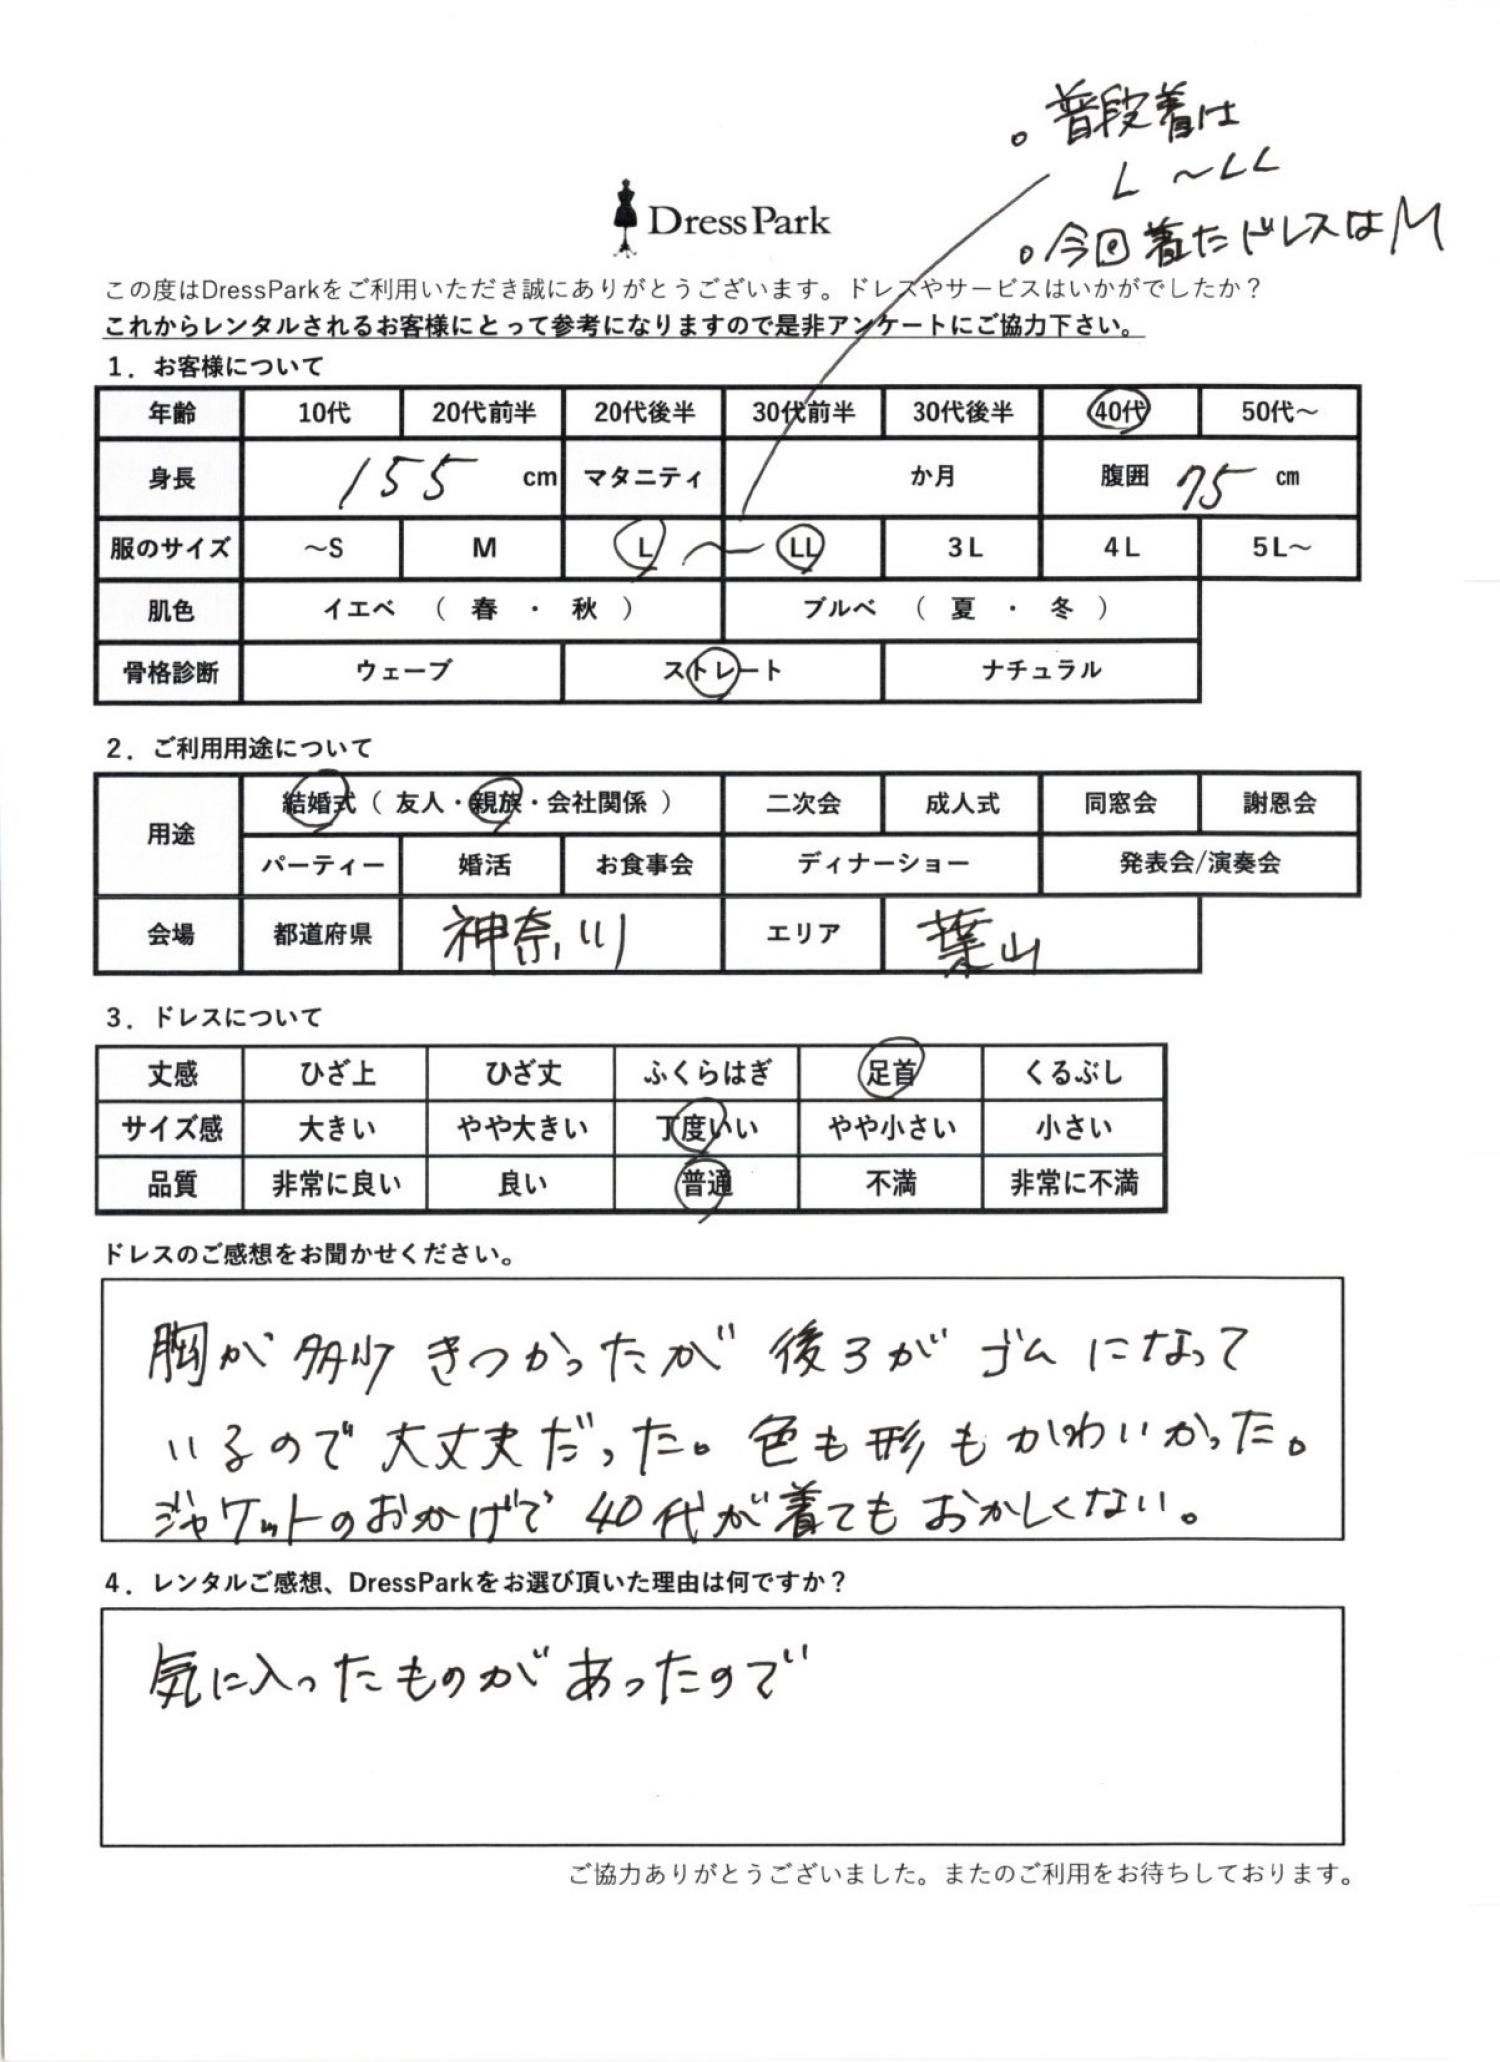 。普段着は
L 〜LL
。今回着たドレスはM
Dress Park
この度はDressParkをご利用いただき誠にありがとうございます。ドレスやサービスはいかがでしたか？
これからレンタルされるお客様にとって参考になりますので是非アンケートにご協力下さい。
1．お客様について
年齢 10代 20代前半 20代後半 30代前半 30代後半 40代 50代～
身長 155 cm マタニティ か月 腹囲 75 cm
服のサイズ ～S M L 〜 LL 3L 4L 5L～
肌色 イエベ （ 春 ・ 秋 ） ブルベ （ 夏 ・ 冬 ）
骨格診断 ウェーブ ストレート ナチュラル
2．ご利用用途について
用途 結婚式（ 友人・親族・会社関係 ） 二次会 成人式 同窓会 謝恩会
パーティー 婚活 お食事会 ディナーショー 発表会/演奏会
会場 都道府県 神奈川 エリア 葉山
3．ドレスについて
丈感 ひざ上 ひざ丈 ふくらはぎ 足首 くるぶし
サイズ感 大きい やや大きい 丁度いい やや小さい 小さい
品質 非常に良い 良い 普通 不満 非常に不満
ドレスのご感想をお聞かせください。
胸が多少きつかったが後ろがゴムになって
いるので大丈夫だった。色も形もかわいかった。
ジャケットのおかげで40代が着てもおかしくない。
4．レンタルご感想、DressParkをお選び頂いた理由は何ですか？
気に入ったものがあったので
ご協力ありがとうございました。またのご利用をお待ちしております。